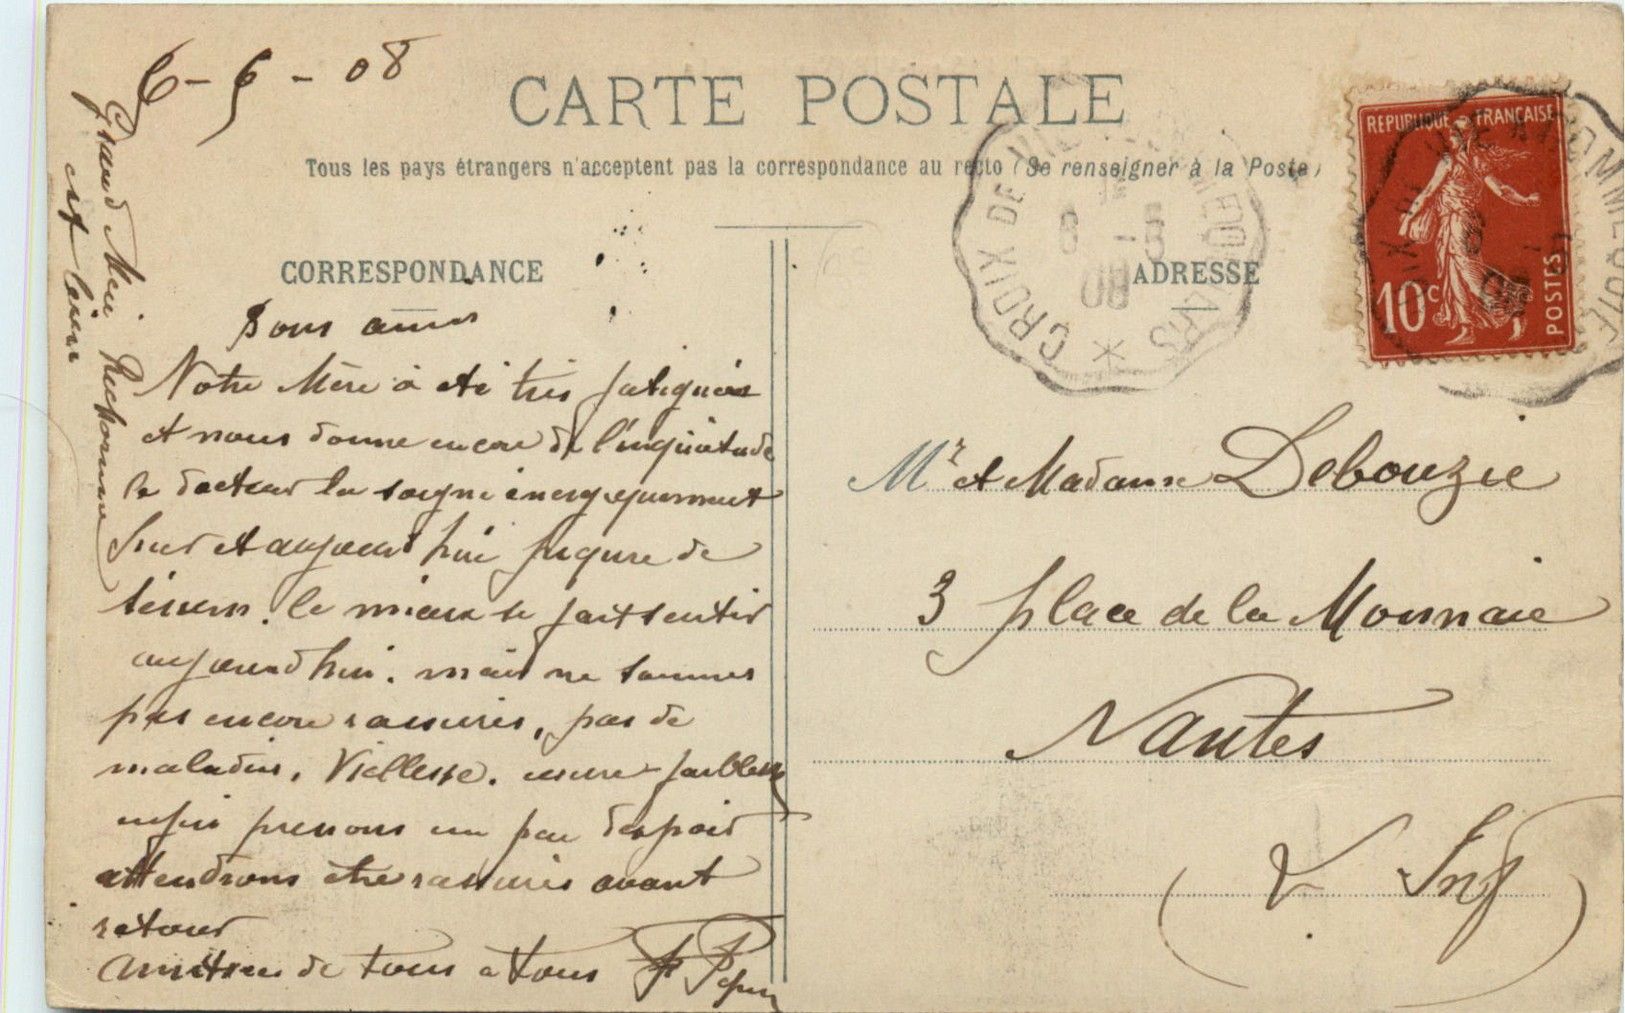 6-6-08
CARTE POSTALE
Tous les pays étrangers n'acceptent pas la correspondance au recto (Se renseigner à la Poste)
CORRESPONDANCE
ADRESSE
Bons amis
Notre Mère à été très fatiguée
et nous donne encore de l'inquiétude
le docteur la soigne énergiquement
hier et aujourd'hui piqure de
sérum. le mieux se fait sentir
aujourd'hui. mais ne sommes
pas encore rassurés, pas de
maladie, Viellesse. usure faiblesse
enfin prenons un peu despoir
attendrons être rassurés avant
retour
Amitiées de tous a tous
Grand Meri Richomme
est bien
Mr et Madame Debouzie
3 place de la Monnaie
Nantes
L. Inf
REPUBLIQUE FRANÇAISE
10c
POSTES
CROIX DE VIE
08